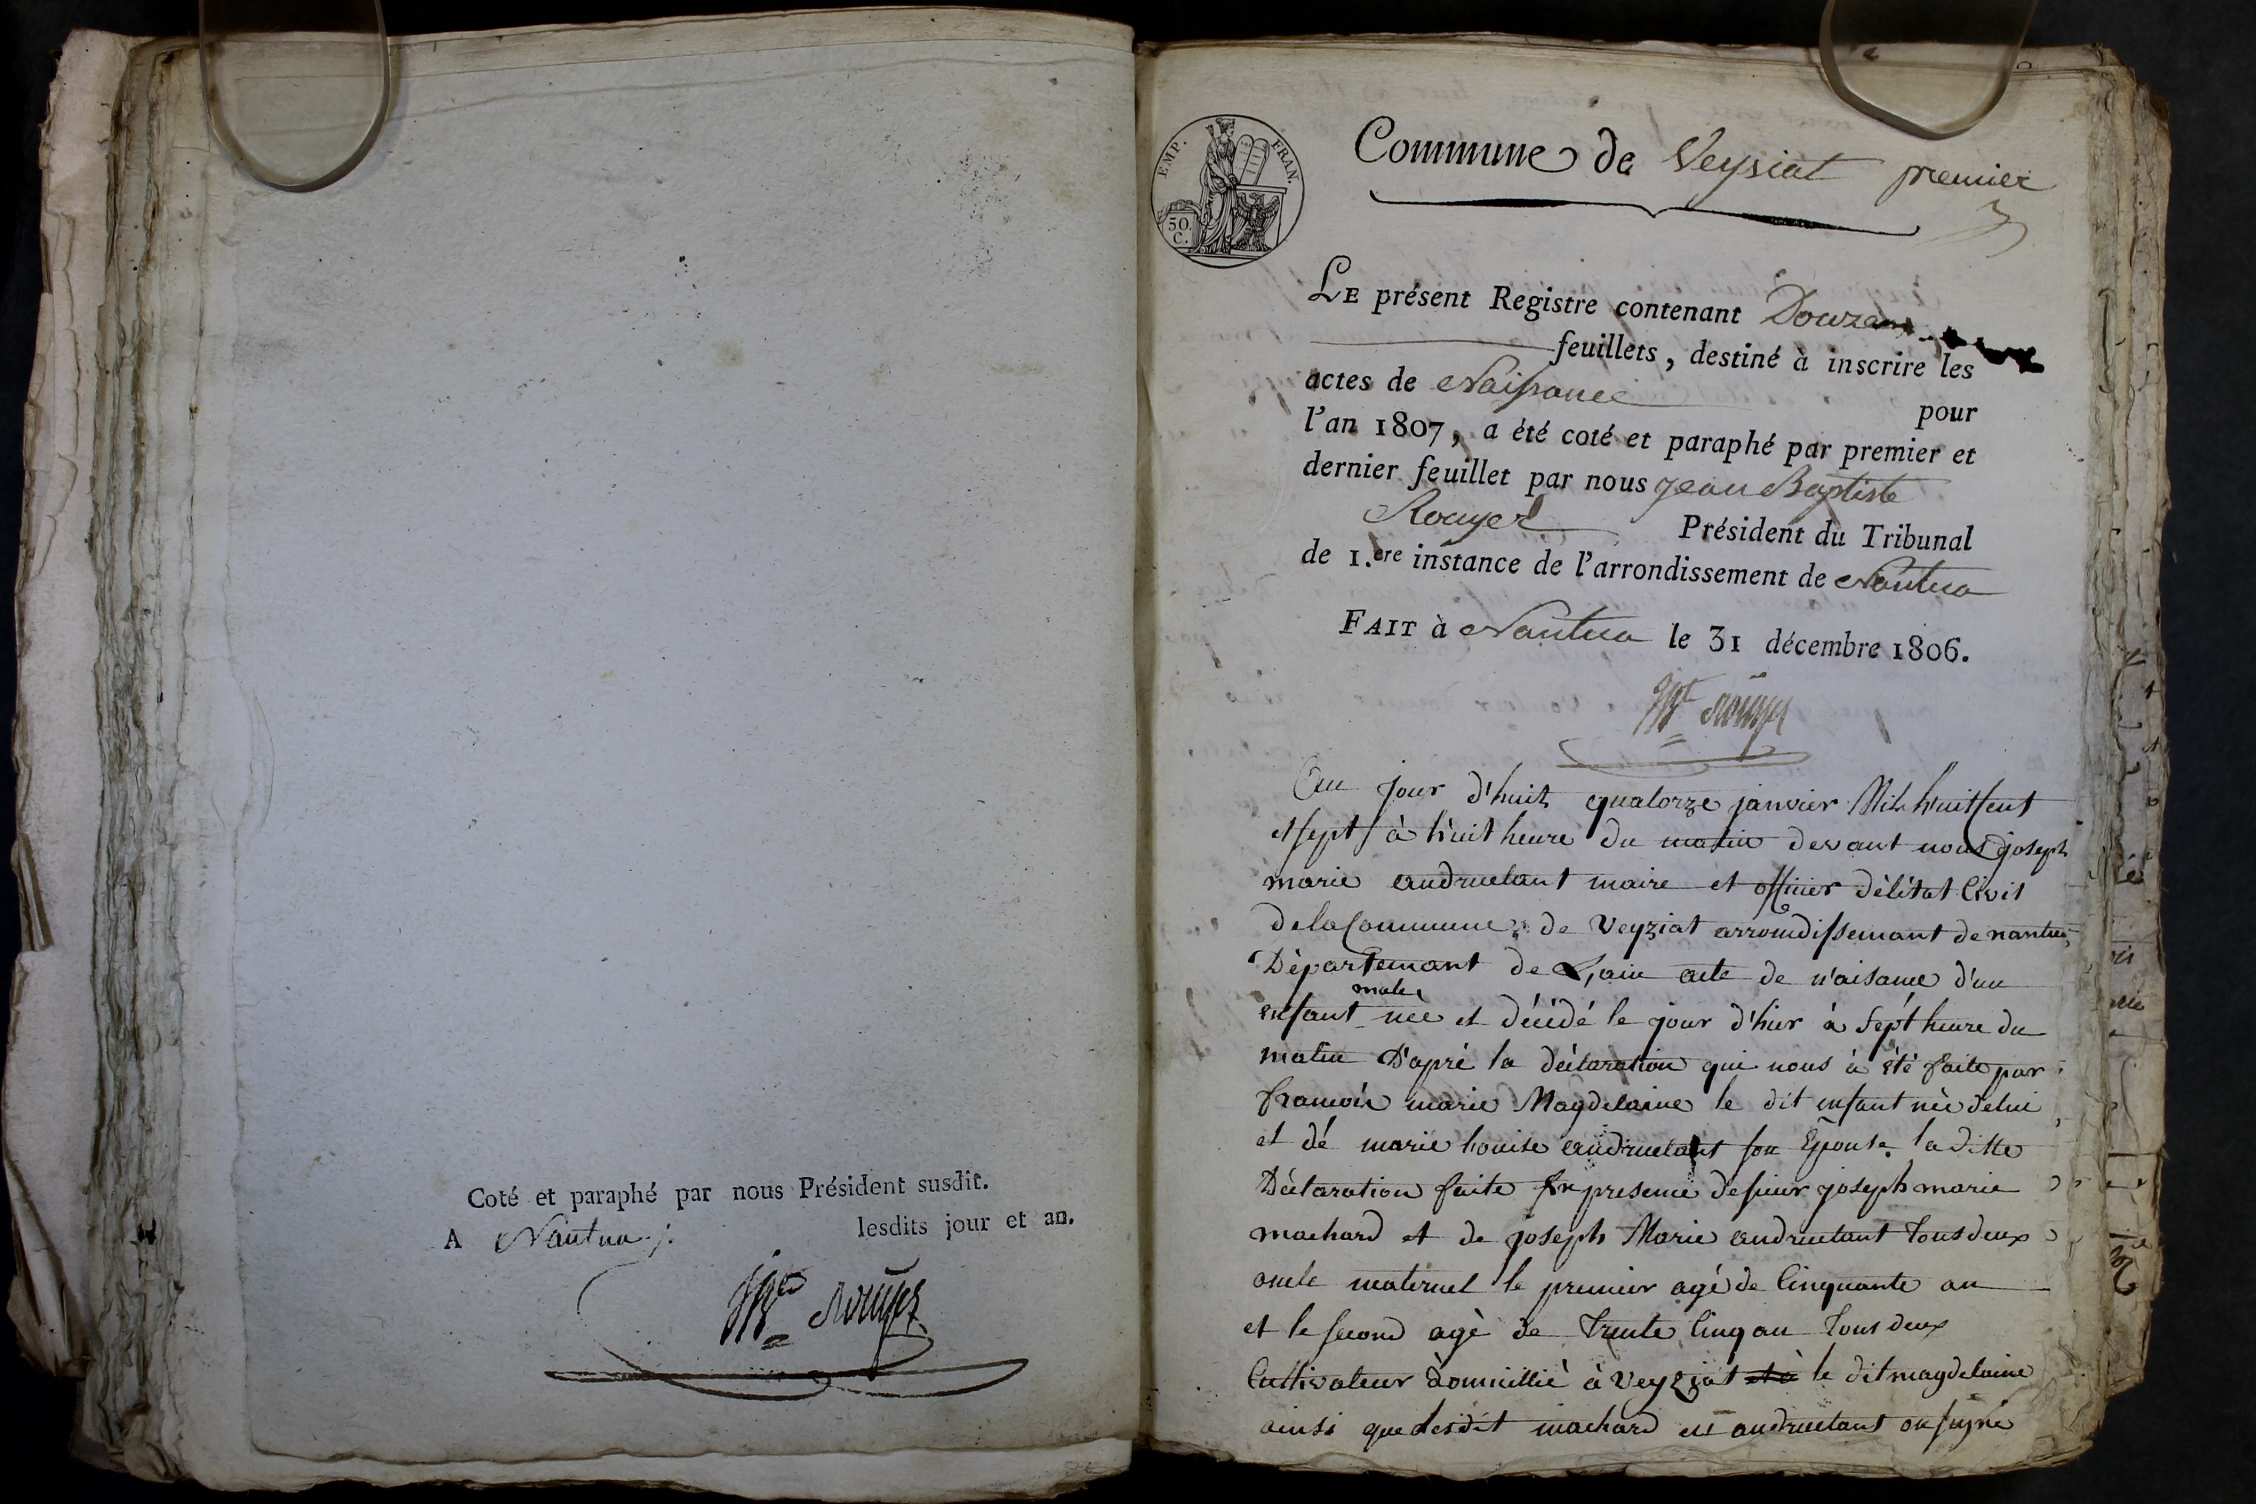 Coté et paraphé par nous Président susdit.
A Nantua lesdits jour et an.
Rouyer
EMP. FRAN.
50. C.
Commune de Veysiat premier
LE présent Registre contenant Douze
feuillets, destiné à inscrire les
actes de Naissance pour
l'an 1807, a été coté et paraphé par premier et
dernier feuillet par nous Jean Baptiste
Rouyer Président du Tribunal
de 1.ere instance de l'arrondissement de Nantua
FAIT à Nantua le 31 décembre 1806.
Rouyer
Au jour d'huit quatorze janvier Mil huit cent
et sept à huit heure du matin devant nous joseph
marie andruetant maire et officier délétat Civil
de la Commune de Veyziat arroundissemant de nantua
Départemant de L'ain acte de n'aisance d'un
enfant male née et décédé le jour d'hier à sept heure du
matin D'apré la déclaration qui nous à été faite par
francois marie Magdelaine le dit enfant née delui
et dé marie louise andruetant son Epouse la ditte
Déclaration faite en presence de sieur joseph marie
machard et de joseph Marie andruetant tous deux
oncle maternel le premier agé de Cinquante an
et le second agè de trente Cinq an tous deux
Cultivateur domicillié à Veyziat et à le dit magdelaine
ainsi que lesdit machard et andruetant on signé